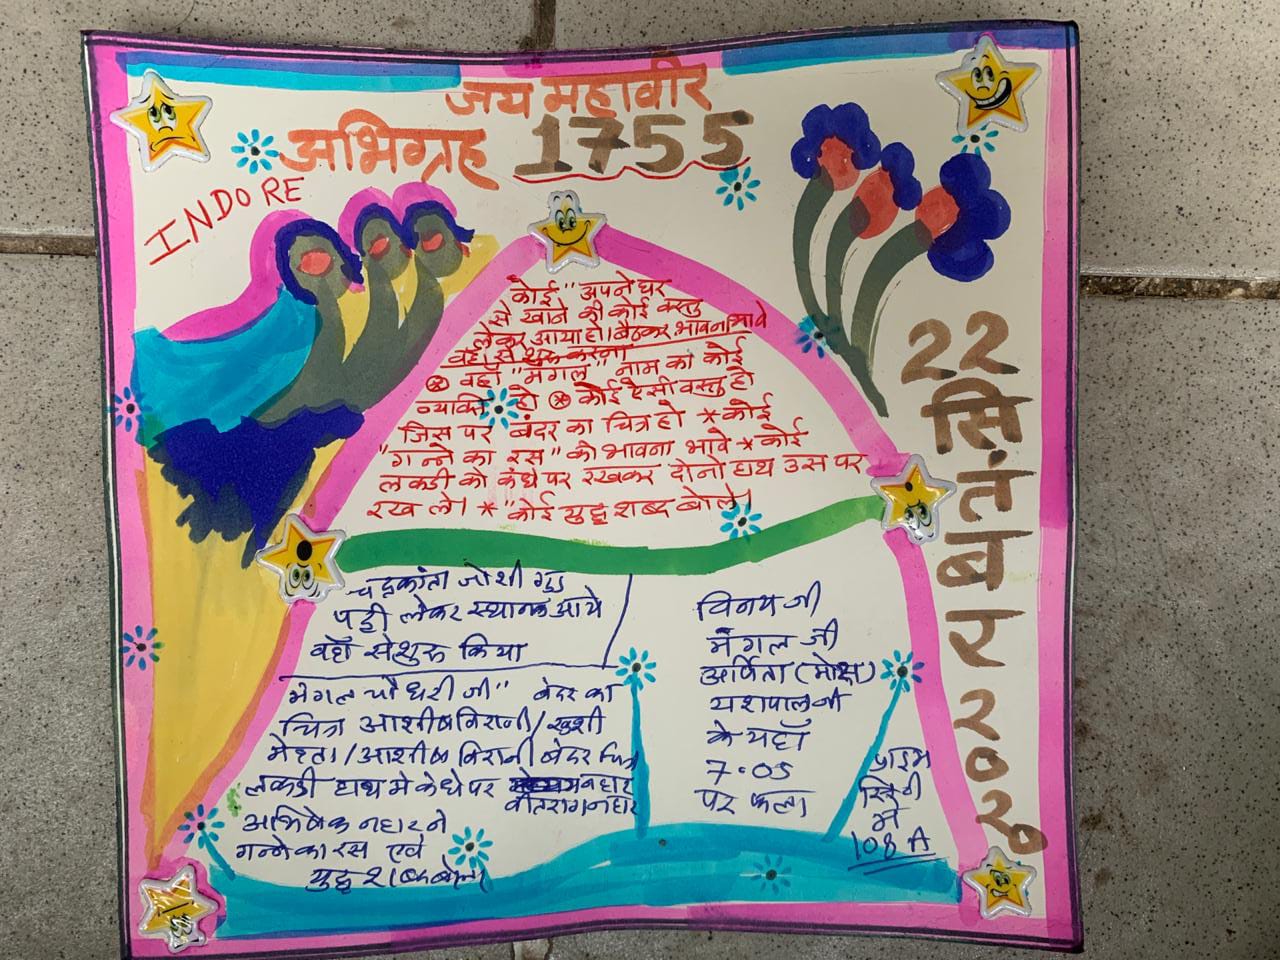 जय महावीर
अभिग्रह 1755
INDORE
कोई "अपने घर
से खाने की कोई वस्तु
लेकर आया हो। बैठकर भावना भावे
वहाँ से शुरू करना
⊛ वहाँ "मंगल" नाम का कोई
व्यक्ति हो ⊛ कोई ऐसी वस्तु हो
जिस पर बंदर का चित्र हो * कोई
"गन्ने का रस" की भावना भावे * कोई
लकडी को कंधे पर रखकर दोनो हाथ उस पर
रख ले। * "कोई युद्ध शब्द बोले।
22
सितंबर
2020
चद्रकांता जोशी गुड
पट्टी लेकर स्थानक आये
वहाँ से शुरू किया
मंगल चौधरी जी" बंदर का
चित्र आशीष विरानी/खुशी
मेहता/आशीष विरानी बंदर चित्र
लकडी हाथ मे कंधे पर
वीतराग नहार
अभिषेक नहार ने
गन्ने का रस एवं
युद्ध शब्द बोला
विनय जी
मंगल जी
अर्पिता (मोक्ष)
यशपाल जी
के यहाँ
7.05
पर फला
प्राइम
सिटी
में
108 A